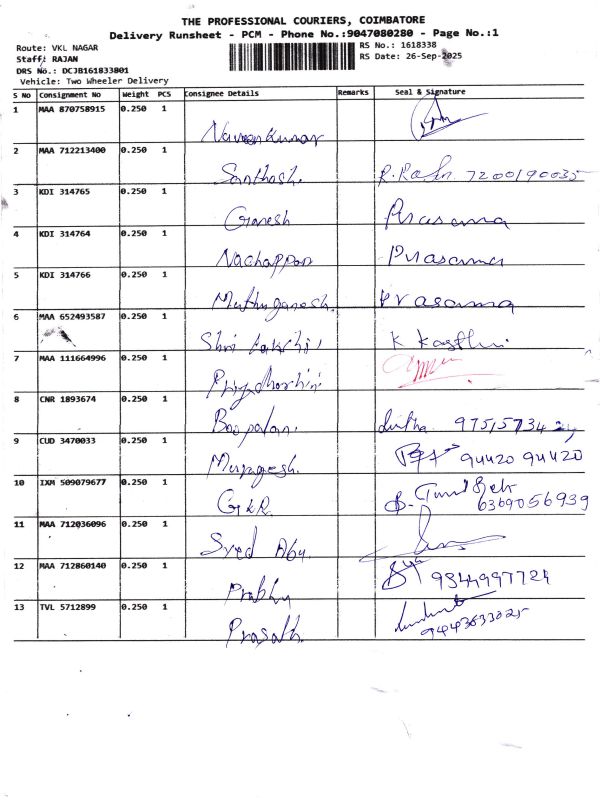 THE PROFESSIONAL COURIERS, COIMBATORE
Delivery Runsheet - PCM - Phone No.:9047080280 - Page No.:1
Route: VKL NAGAR
RS No.: 1618338
Staff: RAJAN
RS Date: 26-Sep-2025
DRS No.: DCJB161833801
Vehicle: Two Wheeler Delivery
S No Consignment No Weight PCS Consignee Details Remarks Seal & Signature
1 MAA 870758915 0.250 1 Naveen Kumar
2 MAA 712213400 0.250 1 Santhosh. 7200190035
3 KDI 314765 0.250 1 Ganesh Prasanna
4 KDI 314764 0.250 1 Nachappan Prasanna
5 KDI 314766 0.250 1 Muthuganesh. Prasanna
6 MAA 652493587 0.250 1 Shri K
7 MAA 111664996 0.250 1 Priyadharshini
8 CNR 1893674 0.250 1 Boopalan.
9 CUD 3470033 0.250 1 Murugesh. 94420 94420
10 IXM 509079677 0.250 1 GKR 6369056939
11 MAA 712036096 0.250 1 Syed Abu.
12 MAA 712860140 0.250 1 Prabhu 9344997724
13 TVL 5712899 0.250 1 Prasath.